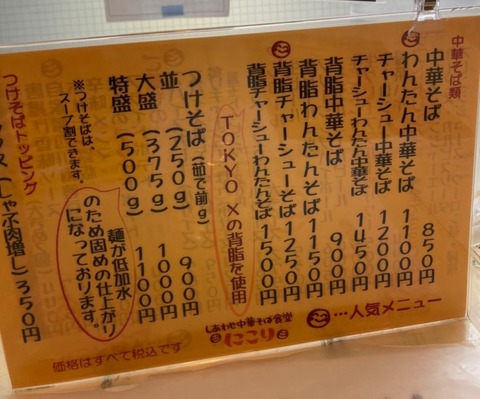 中華そば類
中華そば 850円
わんたん中華そば 1100円
チャーシュー中華そば 1200円
チャーシューわんたん中華そば 1450円
背脂中華そば 900円
背脂わんたんそば 1150円
背脂チャーシューそば 1250円
背脂チャーシューわんたんそば 1500円
TOKYO Xの背脂を使用
つけそば(茹で前g)
並 (250g) 900円
大盛 (375g) 1000円
特盛 (500g) 1100円
※つけそばは、
スープ割できます。
麺が低加水
のため固めの仕上がり
になっております。
つけそばトッピング
(しゃぶ肉増し) 350円
…人気メニュー
しあわせ中華そば食堂
にこり
価格はすべて税込です